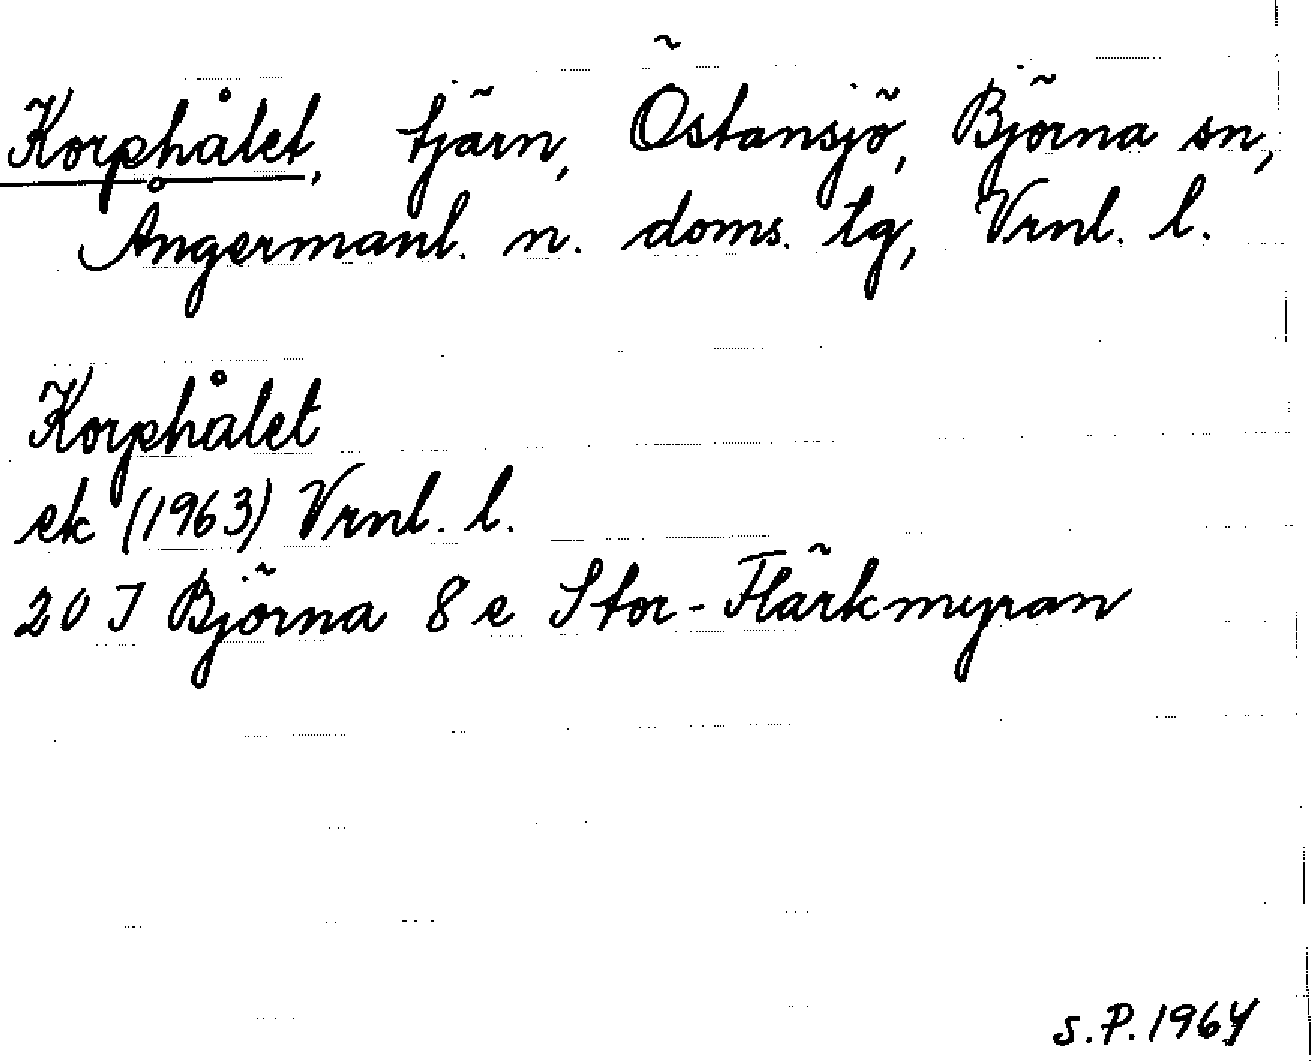 Korphålet, tjärn, Östansjö, Björna sn,
Ångermanl. n. doms. tg, Vrnl. l.
Korphålet
ek (1963) Vrnl. l.
20 I Björna 8 e Stor-Flärkmyran
S.P. 1964